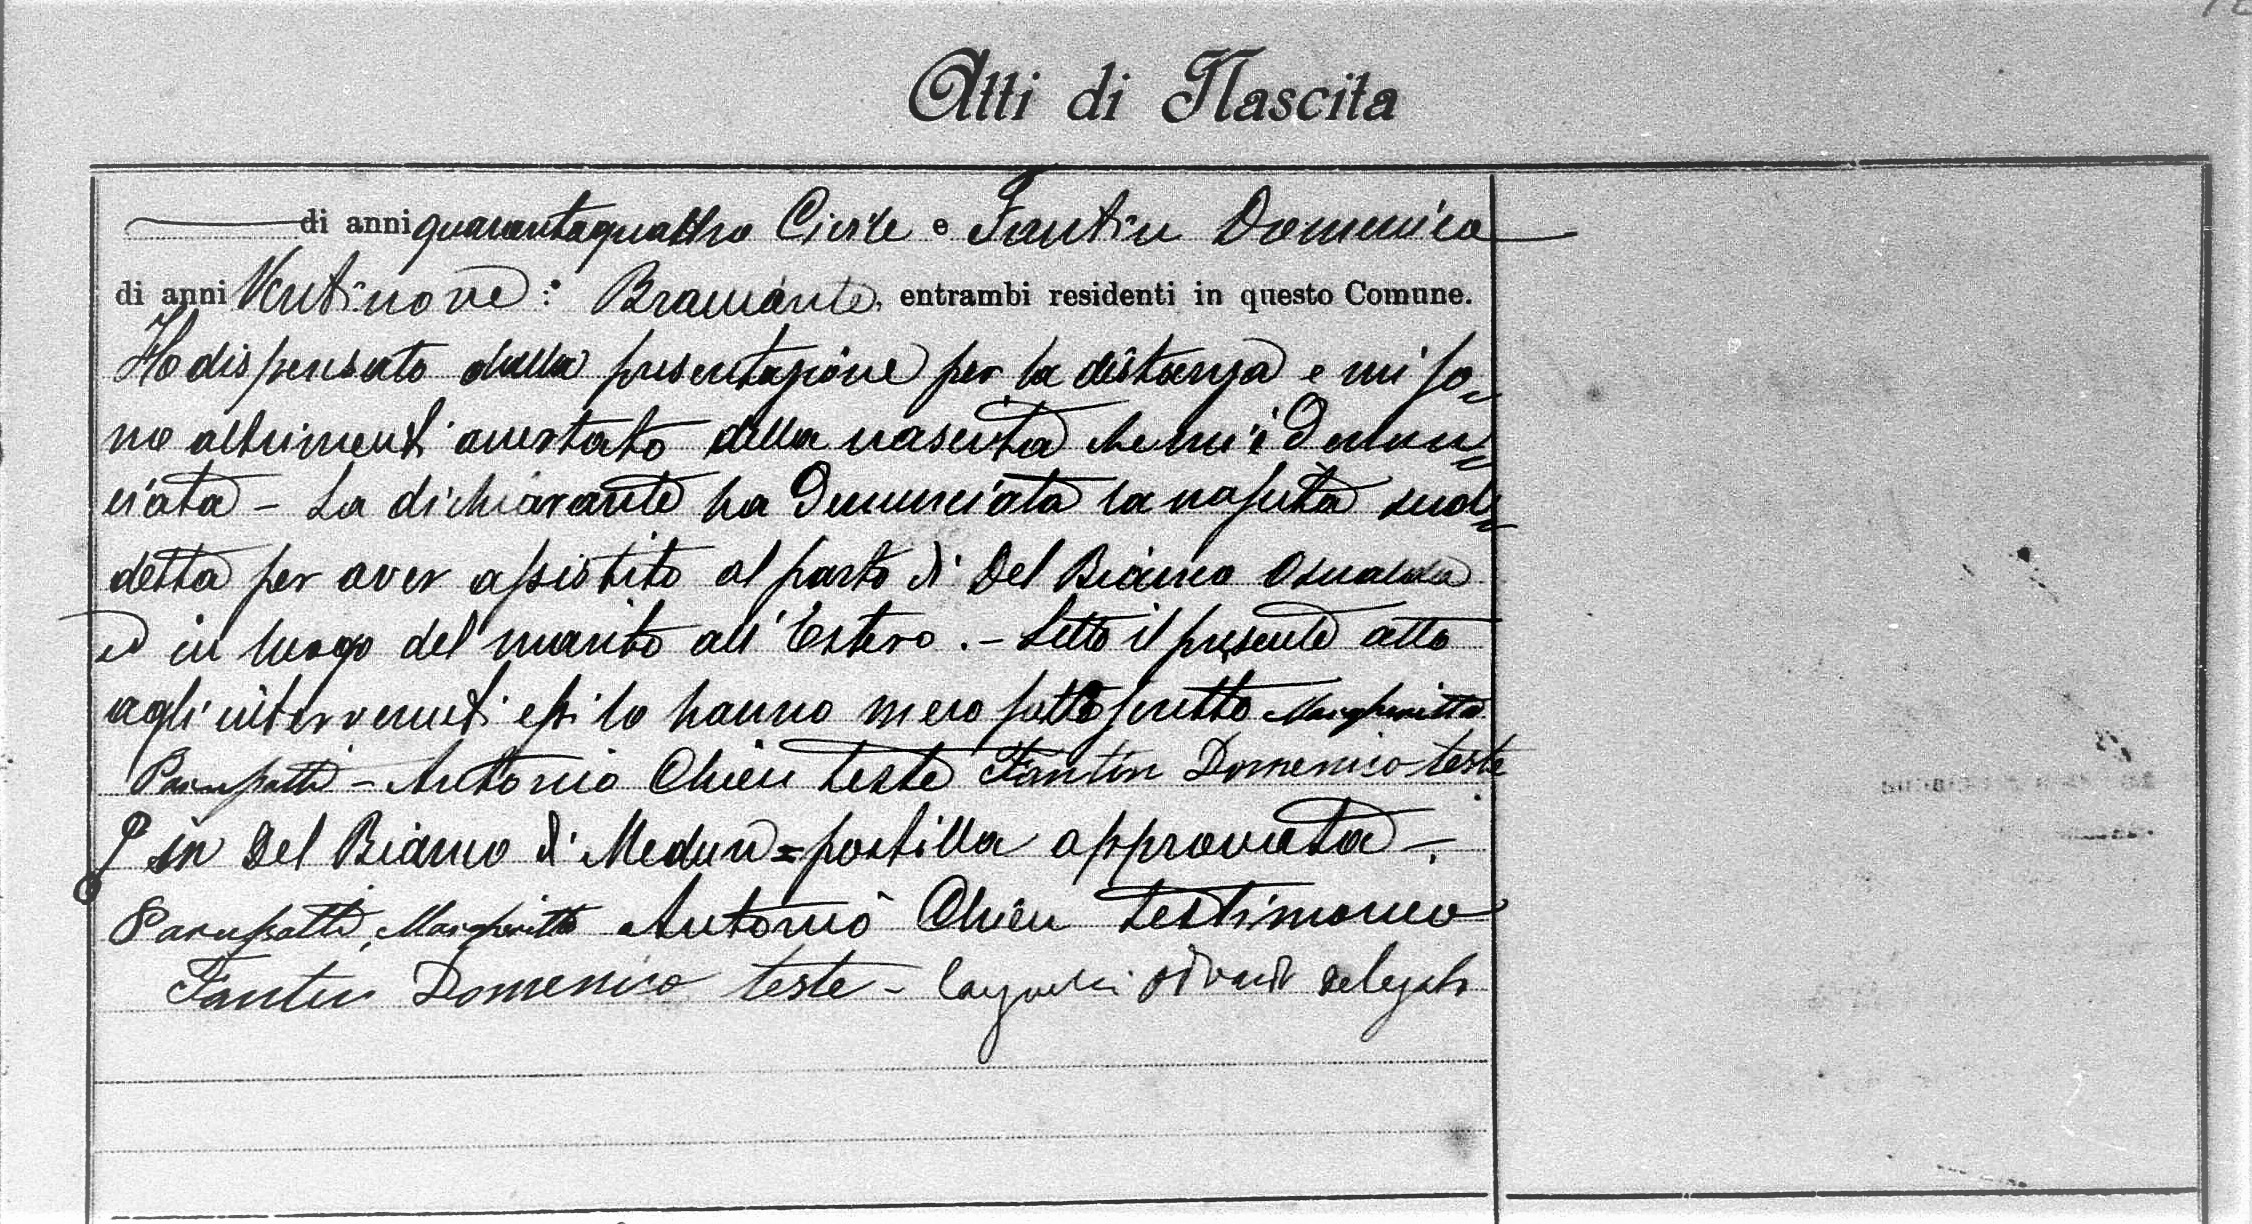 Atti di Nascita
di anni quarantaquattro Civile e Fantin Domenico
di anni Ventinove : Bramante, entrambi residenti in questo Comune.
Ho dispensato dalla presentazione per la distanza e mi so=
no altrimenti accertato della nascita che mi è denun=
ciata - La dichiarante ha denunciata la nascita sud=
detta per aver assistito al parto di Del Bianco Osualda
ed in luogo del marito all'Estero . - Letto il presente atto
agli intervenuti essi lo hanno meco sottoscritto Margheritta
- Antonio Chieu teste Fantin Domenico teste
in Del Bianco di Medun = postilla approvata - .
Margheritta Antonio Chieu testimonio
Fantin Domenico teste - delegato